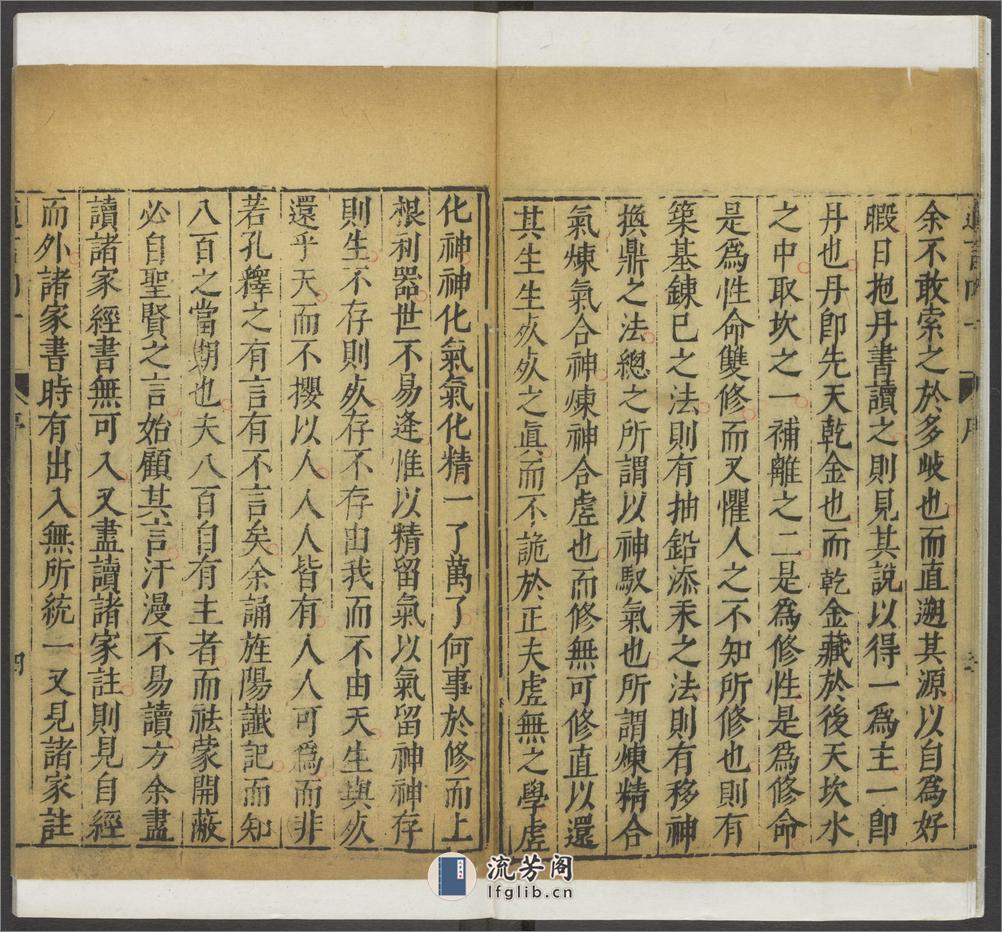 余不敢索之於多岐也而直遡其源以自為好
暇日抱丹書讀之則見其說以得一為主一卽
丹也丹卽先天乾金也而乾金藏於後天坎水
之中取坎之一補離之二是為修性是為修命
是為性命雙修而又懼人之不知所修也則有
築基鍊已之法則有抽鉛添汞之法則有移神
換鼎之法總之所謂以神馭氣也所謂煉精合
氣煉氣合神煉神合虛也而修無可修直以還
其生生灰灰之眞而不詭於正夫虛無之學虛
化神神化氣氣化精一了萬了何事於修而上
根利器世不易逢惟以精留氣以氣留神神存
則生不存則灰存不存由我而不由天生與灰
還乎天而不攖以人人人皆有人人可為而非
若孔釋之有言有不言矣余誦旌陽讖記而知
八百之當期也夫八百自有主者而祛蒙開蔽
必自聖賢之言始顧其言汗漫不易讀方余盡
讀諸家經書無可入又盡讀諸家註則見自經
而外諸家書時有出入無所統一又見諸家註
序
四
流芳阁
lfglib.cn